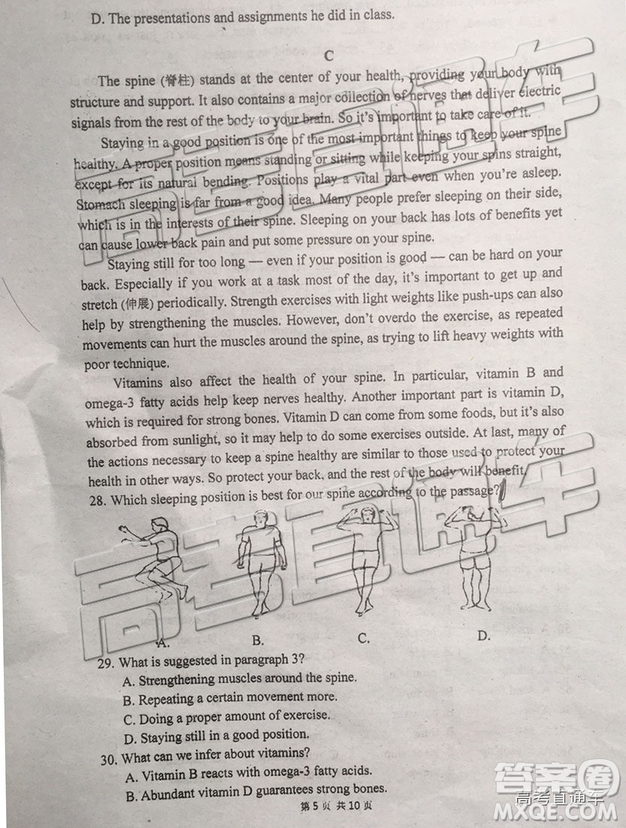 D. The presentations and assignments he did in class.
C
The spine (脊柱) stands at the center of your health, providing your body with
structure and support. It also contains a major collection of nerves that deliver electric
signals from the rest of the body to your brain. So it's important to take care of it.
Staying in a good position is one of the most important things to keep your spine
healthy. A proper position means standing or sitting while keeping your spins straight,
except for its natural bending. Positions play a vital part even when you're asleep.
Stomach sleeping is far from a good idea. Many people prefer sleeping on their side,
which is in the interests of their spine. Sleeping on your back has lots of benefits yet
can cause lower back pain and put some pressure on your spine.
Staying still for too long — even if your position is good — can be hard on your
back. Especially if you work at a task most of the day, it's important to get up and
stretch (伸展) periodically. Strength exercises with light weights like push-ups can also
help by strengthening the muscles. However, don't overdo the exercise, as repeated
movements can hurt the muscles around the spine, as trying to lift heavy weights with
poor technique.
Vitamins also affect the health of your spine. In particular, vitamin B and
omega-3 fatty acids help keep nerves healthy. Another important part is vitamin D,
which is required for strong bones. Vitamin D can come from some foods, but it's also
absorbed from sunlight, so it may help to do some exercises outside. At last, many of
the actions necessary to keep a spine healthy are similar to those used to protect your
health in other ways. So protect your back, and the rest of the body will benefit.
28. Which sleeping position is best for our spine according to the passage?
A. B. C. D.
29. What is suggested in paragraph 3?
A. Strengthening muscles around the spine.
B. Repeating a certain movement more.
C. Doing a proper amount of exercise.
D. Staying still in a good position.
30. What can we infer about vitamins?
A. Vitamin B reacts with omega-3 fatty acids.
B. Abundant vitamin D guarantees strong bones.
第 5 页 共 10 页
高考直通车
高考直通车
答案圈
高考直通车
MXQE.COM